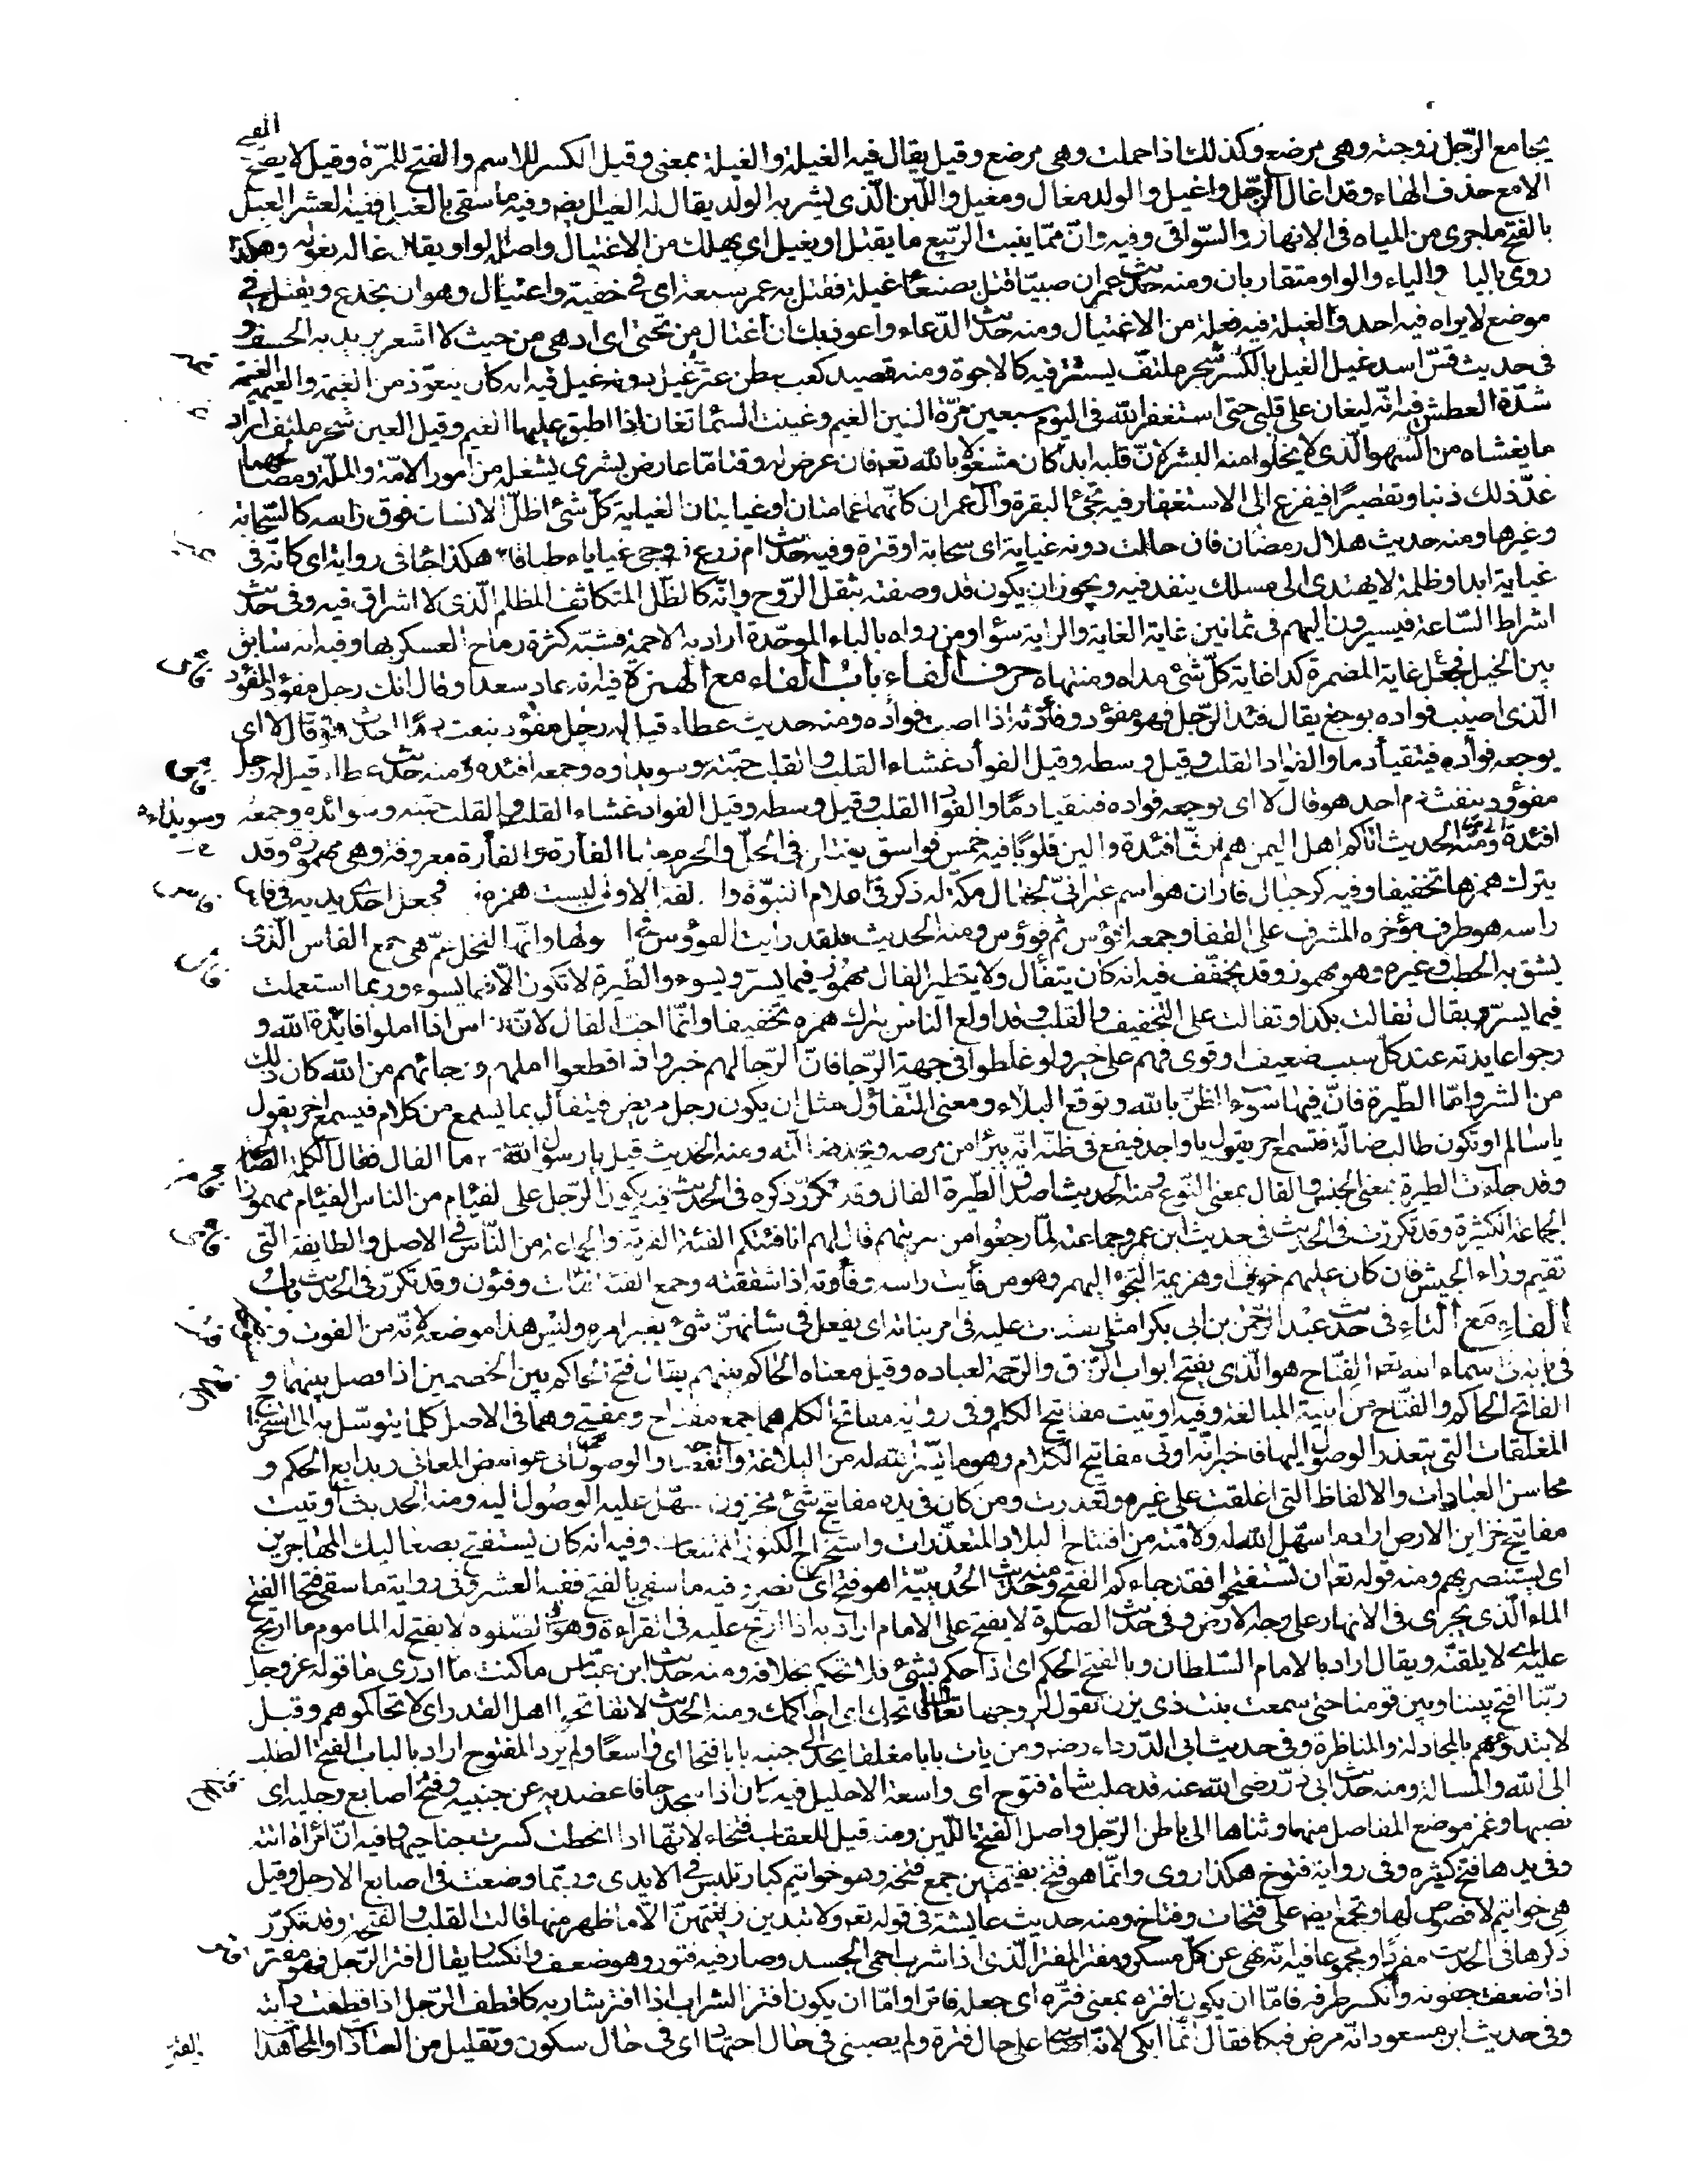 يجامع الرّجل زوجته وهى مرضع وكذلك اذا حملت وهى مرضع وقيل يقال فيه الغيلة والغيلة بمعنى وقيل الكسر للاسم والفتح للمرّة وقيل لا يصحّ الفتح
الا مع حذف الهاء وقد اغال الرّجل واغيل والولد مغال ومغيل واللّبن الّذى يشربه الولد يقال له الغيل ايضا وفيه ما سقى بالغيل ففيه العشر الغيل
بالفتح ما جرى من المياه فى الانهار والسّواقى وفيه وانّ ممّا ينبت الرّبيع ما يقتل او يغيل اى يهلك من الاغتيال واصله الواو يقال غاله يغوله وهكذا
روى بالياء والياء والواو متقاربان ومنه حديث عمر ان صبيّا قتل بصنعاء غيلة فقتل به عمر سبعة اى فى خفية واغتيال وهو ان يخدع ويقتل فى
موضع لا يراه فيه احد والغيلة فيه فعلة من الاغتيال ومنه حديث الدّعاء واعوذ بك ان اغتال من تحتى اى ادهى من حيث لا اشعر يريد به الخسف و
فى حديث قسّ اسد غيل الغيل بالكسر شجر ملتفّ يستتر فيه كالاجوة ومنه قصيد كعب ببطن عثّر غيل دونه غيل فيه انه كان يتعوّذ من الغيمة والعيمة الغيمة
شدّة العطش فيه انّه ليغان على قلبى حتى استغفر الله فى اليوم سبعين مرّة الغين الغيم وغينت السّماء تغان اذا اطبق عليها الغيم وقيل الغين شجر ملتف اراد
ما يغشاه من السّهو الّذى لا يخلوا منه البشر لانّ قلبه ابدا كان مشغولا بالله تعه فان عرض له وقتا مّا عارض بشرى يشغله من امور الامّة والملّة ومصالحهما
عدّ ذلك ذنبا وتقصيرًا فيفزع الى الاستغفار وفيه تجئ البقرة وآل عمران كانّهما غمامتان او غيايتان الغياية كلّ شئ اظلّ الانسان فوق راسه كالسّحابة
وغيرها ومنه حديث هلال رمضان فان حالت دونه غياية اى سحابة او قترة وفيه حديث ام زرع زوجى غياياء طباقاء هكذا جاء فى رواية اى كانّه فى
غياية ابدا وظلمة لا يهتدى الى مسلك ينفد فيه ويجوز ان يكون قد وصفته بثقل الرّوح وانّه كالظّلّ المتكاثف المظلم الّذى لا اشراق فيه وفى حديث
اشراط السّاعة فيسيرون اليهم فى ثمانين غاية الغاية والراية سؤاء ومن رواه بالباء الموحّدة اراد به الاجمة فشبّه كثرة رماح العسكر بها وفيه انه سابق
بين الخيل فجعل غاية المضمرة كذا غاية كلّ شئ مداه ومنتهاه حرف الفاء باب الفاء مع الهمزة فيه انه عاد سعدا وقال انك رجل مفؤد المفؤد
الّذى اصيب فواده بوجع يقال فئد الرّجل فهو مفؤد وفأدته اذا اصبت فؤاده ومنه حديث عطاء قيل له رجل مفؤد ينفث دمًا احدث هو قال لا اى
يوجعه فوأده فيتقيأ دما والفواد القلب وقيل وسطه وقيل الفوأد غشاء القلب والقلب حبّته وسويداوه وجمعه افئدة ومنه حديث عطاء قيل له رجل
مفؤود ينفث دم احد هو قال لا اى يوجعه فواده فيتقيا دمًا والفواد القلب وقيل وسطه وقيل الفواد غشاء القلب والقلب حبّته وسوائده وجمعه وسويداءه
افئدة ومنه الحديث اتاكم اهل اليمن هم ارقّ افئدة والين قلوبًا فيه خمس فواسق يقتلن فى الحلّ والحرم منها الفأرة والفأرة معروفة وهى مهموزة وقد
يترك همزها تخفيفا وفيه ذكر جبال فاران هو اسم عبرانىّ لجبال مكّة له ذكر فى اعلام النبوّة والفه الاولى ليست همزة فجعل احدى يديه فى فاس
راسه هو طرف مؤخره المشرف على القفا وجمعه افؤس ثم فؤؤس ومنه الحديث ولقد رايت الفؤوس فى اصولها وانّها لنخل عمّ هى جمع الفاس الّذى
يشقّ به الحطب وغيره وهو مهموز وقد يخفّف فيه انه كان يتفأل ولا يتطير الفال مهموز فيما يسرّ ويسوء والطّيرة لا تكون الّا فيما يسوء وربما استعملت
فيما يسرّ ويقال تفالت بكذا وتفالت على التخفيف والقلب وقد اولع الناس بترك همزه تخفيفا وانّما احبّ الفال لانّ النّاس اذا املوا فائدة الله و
رجوا عايدته عند كلّ سبب ضعيف او قوى فهم على خير ولو غلطوا فى جهة الرّجا فانّ الرّجا لهم خير واذا قطعوا املهم ورجائهم من الله كان ذلك
من الشر وامّا الطّيرة فانّ فيها سوء الظنّ بالله وتوقع البلاء ومعنى التّفاؤل مثل ان يكون رجل مريض فيتفأل بما يسمع من كلام فيسمع اخر يقول
يا سالم او تكون طالب ضالّة فتسمع اخر يقول يا واجد فيقع فى ظنّه انّه يبرا من مرضه ويجد ضالّته ومنه الحديث قيل يا رسول الله ما الفال فقال الكلمة الصّالحة
وقد جاءت الطيرة بمعنى الجنس والفال بمعنى النّوع ومنه الحديث اصدق الطّيرة الفال وقد تكرّر ذكره فى الحديث فيه يكون الرّجل على الفئام من الناس الفئام مهموز
الجماعة الكثيرة وقد تكررت فى الحديث فى حديث ابن عمر وجماعته لمّا رجعوا من سريتهم قال لهم انا فئتكم الفئة الفرقة والجماعة من النّاس فى الاصل والطايفة التّى
تقيم وراء الجيش فان كان عليهم خوف او هزيمة التجؤا اليهم وهو من فأيت راسه وفأوته اذا شققته وجمع الفئة فئات وفئون وقد تكرّر فى الحديث باب
الفاء مع التّاء فى حديث عبد الرّحمن بن ابى بكر امثلى يفتات عليه فى امر بناته اى يفعل فى شانهنّ شئ بغير امره وليس هذا موضعه لانّه من الفوت و
فى بابه اسماء الله تعه الفتّاح هو الّذى يفتح ابواب الرّزق والرّحمة لعباده وقيل معناه الحاكم بينهم يقال فتح الحاكم بين الخصمين اذا فصل بينهما و
الفاتح الحاكم والفتّاح من ابنية المبالغة وفيه اوتيت مفاتيح الكلم وفى رواية مفاتح الكلم هما جمع مفتاح ومفتح وهما فى الاصل كلما يتوسّل به الى استخراج
المغلقات التى يتعذر الوصول اليها فاخبر انّه اوتى مفاتيح الكلام وهو ما يسّر الله له من البلاغة والفصاحة والوصول الى غوامض المعانى وبدايع الحكم و
محاسن العبادات والالفاظ التى اغلقت على غيره وتعدرت ومن كان فى يده مفاتيح شئ مخزون سهّل عليه الوصول اليه ومنه الحديث اوتيت
مفاتيح خزاين الارض اراد ما سهّل الله له ولامّته من افتتاح البلاد المتعذّرات واستخراج الكنوز الممتنعات وفيه انه كان يستفتح بصعاليك المهاجرين
اى يستنصر بهم ومنه قوله تعه ان تستفتحوا فقد جاءكم الفتح ومنه حديث الحديبيّة اهو فتح اى نصر وفيه ما سقى بالفتح ففيه العشر وفى رواية ما سقى فتحا الفتح
الماء الّذى يجرى فى الانهار على وجه الارض وفى حديث الصلوة لا يفتح على الامام اراد به اذا ارتج عليه فى القراءة وهو فى الصّلوة لا يفتح له الماموم ما ارتج
عليه اى لا يلقنّه ويقال اراد بالامام السّلطان وبالفتح الحكم اى اذا حكم بشئ فلا تحكم بخلافه ومنه حديث ابن عبّاس ما كنت ما ادرى ما قوله عز وجل
ربّنا افتح بيننا وبين قومنا حتى سمعت بنت ذى يزن تقول لزوجها تعال افاتحك اى احاكمك ومنه الحديث لا تفاتحوا اهل القدر اى لا تحاكموهم وقيل
لا تبتدؤهم بالمجادلة والمناظرة وفى حديث ابى الدّرداء رضه ومن يات بابا مغلقا يجد الى جنبه بابا فتحا اى واسعًا ولم يرد المفتوح اراد بالباب الفتح الطلب
الى الله والمسالة ومنه حديث ابى ذرّ رضى الله عنه قد حلب شاة فتوح اى واسعة الاحليل فيه كان اذا سجد جافا عضديه عن جنبيه وفتخ اصابع رجليه اى
نصبها وغمز موضع المفاصل منهما وثناها الى باطن الرّجل واصل الفتخ اللّين ومنه قيل للعقاب فتخاء لانّها اذا انحطت كسرت جناحيها وفيه انّ امرأة اتته
وفى يدها فتخ كثيره وفى رواية فتوخ هكذا روى وانّما هو فتخ بفتحتين جمع فتخه وهو خواتيم كبار تلبس فى الايدى وربّما وضعت فى اصابع الارجل وقيل
هى خواتيم لا فصوص لها وتجمع ايضا على فتخات وفتاخ ومنه حديث عايشة فى قوله تعه ولا تبدين زينتهنّ الّا ما ظهر منها قالت القلب والفتخة وقد تكرّر
ذكرها فى الحديث مفردًا ومجموعا فيه انّه نهى عن كلّ مسكر ومفتر المفتر الّذى اذا شرب احمى الجسد وصار فيه فتور وهو ضعف وانكسار يقال افتر الرّجل فهو مفتر
اذا ضعفت جفونه وانكسر طرفه فامّا ان يكون افتره بمعنى فتّره اى جعله فاترا وامّا ان يكون افتر الشراب اذا افتر شاربه كاقطف الرّجل اذا قطفت دابته
وفى حديث ابن مسعود انّه مرض فبكا فقال انّما ابكى لانّه اصابنى على حال فترة ولم يصبنى فى حال اجتهاد اى فى حال سكون وتقليل من العبادات والمجاهدات